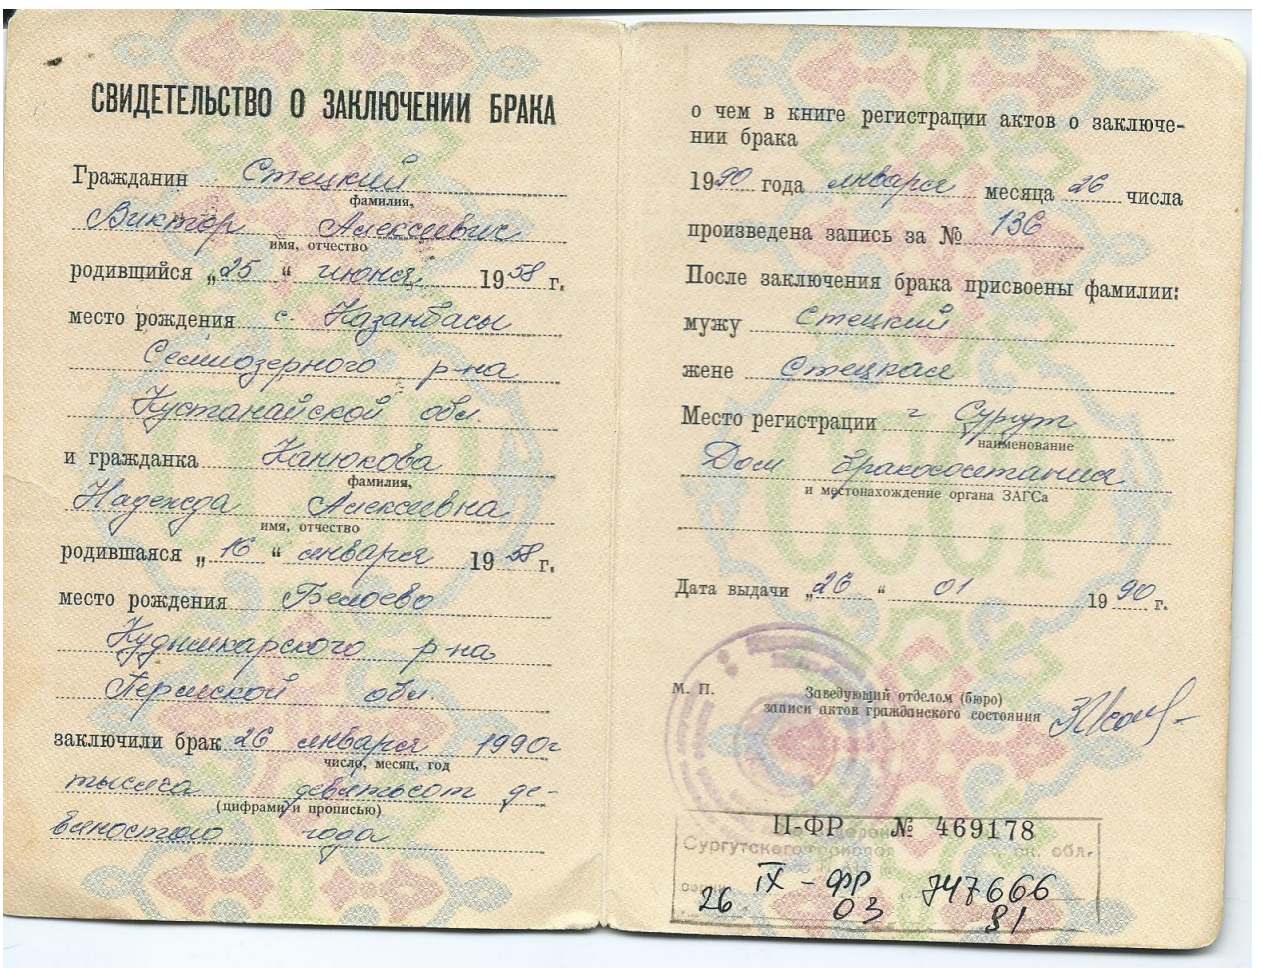 СВИДЕТЕЛЬСТВО О ЗАКЛЮЧЕНИИ БРАКА
Гражданин Стецкий
фамилия,
Виктор Алексеевич
имя, отчество
родившийся „25“ июня 1958 г.
место рождения с. Казанбасы
Семиозерного р-на
Кустанайской обл.
и гражданка Канюкова
фамилия,
Надежда Алексеевна
имя, отчество
родившаяся „16“ января 1958 г.
место рождения Белоево
Кудымкарского р-на
Пермской обл.
заключили брак 26 января 1990г
число, месяц, год
тысяча девятьсот де-
(цифрами и прописью)
вяностого года
о чем в книге регистрации актов о заключе-
нии брака
1990 года января месяца 26 числа
произведена запись за № 136
После заключения брака присвоены фамилии:
мужу Стецкий
жене Стецкая
Место регистрации г Сургут
наименование
Дом бракосочетания
и местонахождение органа ЗАГСа
Дата выдачи „26“ 01 1990 г.
М. П.
Заведующий отделом (бюро)
записи актов гражданского состояния
II-ФР № 469178
Сургутского обл.
IX - ФР 747666
26 03 91
СССР
СССР